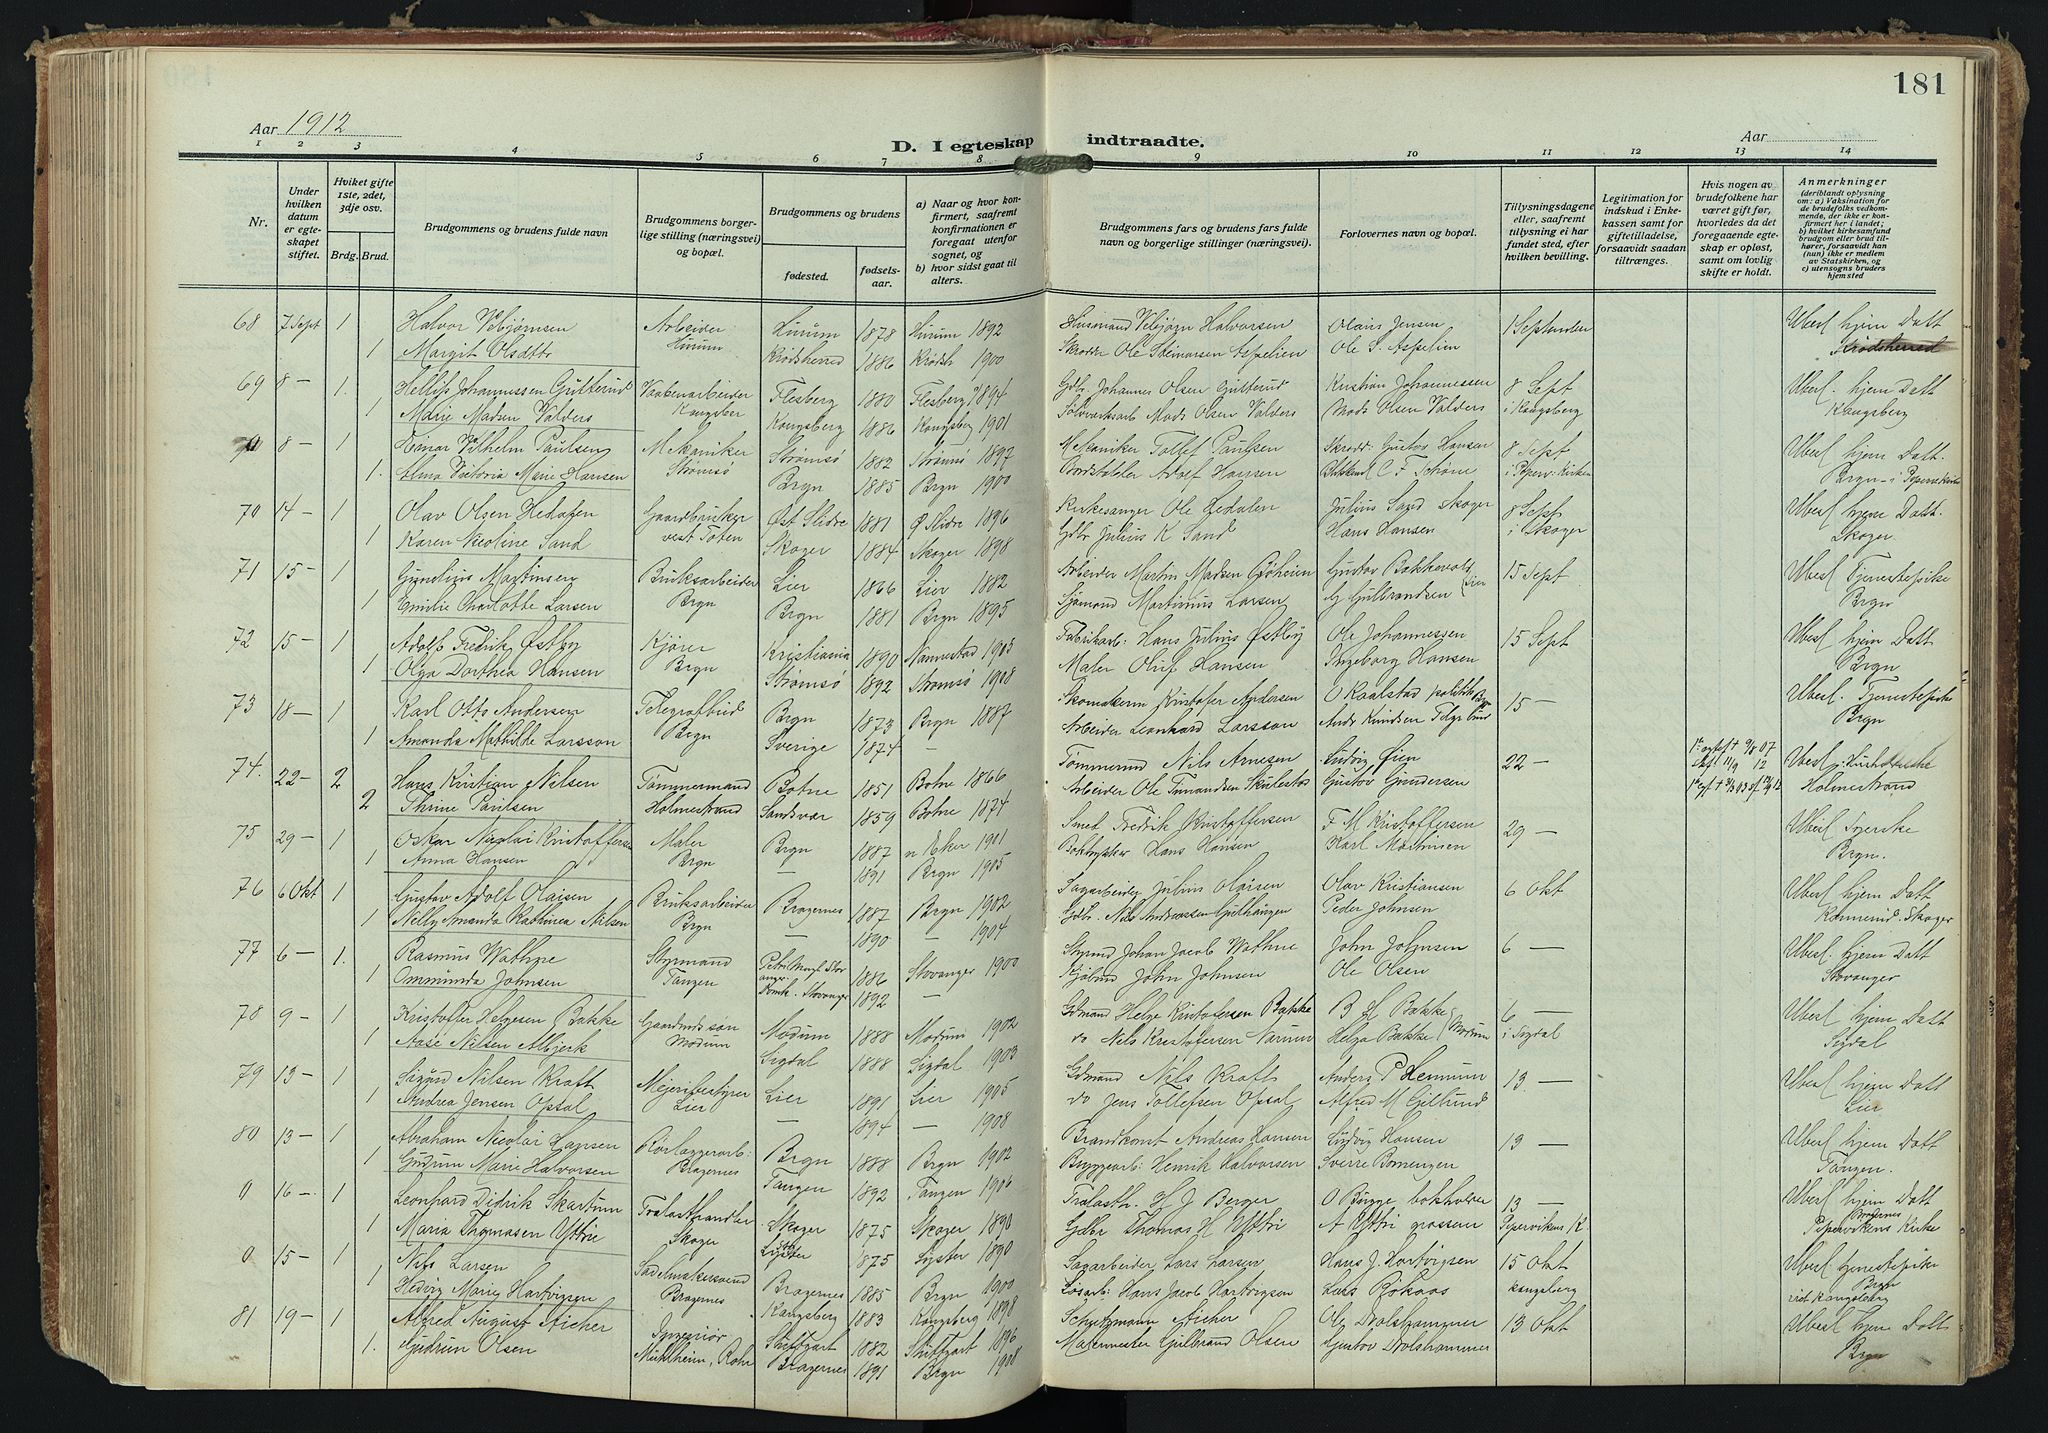 181
Aar 1912
D. I egteskap indtraadte.
Aar
1 2 3 4 5 6 7 8 9 10 11 12 13 14
Nr.
Under hvilken datum er egteskapet stiftet.
Hviket gifte 1ste, 2det, 3dje osv.
Brdg. Brud.
Brudgommens og brudens fulde navn
Brudgommens borgerlige stilling (næringsvei) og bopæl.
Brudgommens og brudens
fødested.
fødselsaar.
a) Naar og hvor konfirmert, saafremt konfirmationen er foregaat utenfor sognet, og
b) hvor sidst gaat til alters.
Brudgommens fars og brudens fars fulde navn og borgerlige stillinger (næringsvei).
Forlovernes navn og bopæl.
Tillysningsdagene eller, saafremt tillysning ei har fundet sted, efter hvilken bevilling.
Legitimation for indskud i Enkekassen samt for giftetilladelse, forsaavidt saadan tiltrænges.
Hvis nogen av brudefolkene har været gift før, hvorledes da det foregaaende egteskap er opløst, samt om lovlig skifte er holdt.
Anmerkninger (deriblandt oplysning om: a) Vaksination for de brudefolks vedkommende, der ikke er konfirmert her i landet; b) hvilket kirkesamfund brudgom eller brud tilhører, forsaavidt han (hun) ikke er medlem av Statskirken, og c) utensogns bruders hjemsted
68 7 Sept 1 Halvor Vebjørnsen Arbeider Hurum 1878 Hurum 1892 Husmand Vebjørn Halvorsen Olais Jensen 1 September Ubesl hjem Datt
1 Margit Olsdtr Hurum Krødsherred 1886 Krødsh 1900 Skrædder Ole Steinarsen Aspelien Ole S. Aspelien Krødsherred
69 8 — 1. Johannessen Gutterud Vaabenarbeider Flesberg 1880 Flesberg 1894 Gdbr Johannes Olsen Gutterud Kristian Johannessen 8 Sept Ubesl. hjem Datt
1 Marie Madsen Valders Kongsber Kongsberg 1886 Kongsbg 1901 Sølvverksarb Mads Olsen Valders Mads Olsen Valders i Kongsberg Kongsberg
0 8 — 1 Einar Vilhelm Paulsen Mekaniker Strømsø 1882 Strømsø 1897 Mekaniker Tollef Paulsen Skrædd: Gustav Hansen 8 Sept Ubesl hjem Datt.
1. Alma Victoria Marie Hansen Strømsø Brgn 1885 Brgn 1900 Adolf Hansen C F Schøne i Peperv. Kirken Brgn
70 14 — 1 Olav Olsen Hedalen Gaardbruker Øst Slidre 1881 Ø Slidre 1896 Kirkesanger Ole Hedalen Julius Sand Skoger 8 Sept Ubesl hjem Datt.
1 Karen Nicoline Sand vest Toten Skoger 1884 Skoger 1898 Gdbr Julius K Sand Hans Hansen i Skoger Skoger.
71 15 — 1 Gunelius Martinsen Bruksarbeider Lier 1866 Lier 1882 Arbeider Martin Madsen Gustav Bakkevold 15 Sept Ubesl Tjenestepike
1 Emilie Charlotte Larsen Brgn Brgn 1881 Brgn 1895 Sjømand Martinius Larsen G Gulbrandsen Lier Brgn
72 15 — 1 Adolf Fredrik Østby Kjører Kristiania 1890 Nannestad 1905 Fabrikarb: Hans Julius Østby Ole Johannessen 15 Sept Ubesl hjem Datt
1 Olga Dorthea Hansen Brgn Strømsø 1892 Strømsø 1908 Maler Oluf Hansen Ingeborg Hansen Brgn
73 18 — 1 Karl Otto Andersen Telegrafbud Brgn 1873 Brgn 1887 Skomakerm Kristofer Andersen O Kaalstad 15 — Ubesl. Tjenestepike
1 Amanda Mathilde Larsson Brgn Sverige 1874 — Arbeider Leonhard Larsson Ands Knudsen Brgn
74. 22 — 2 Hans Kristian Nilsen Tømmermand Botne 1851 Botne 1866 Tømmermd Nils Arnesen Ludvig Øien 22 — 1ste egtef † 9/8 07 Ubesl.
2 Thrine Paulsen Holmestrand Sandsvær 1859 Botne 1874 Arbeider Ole Gustav Gundersen Holmestrand
75 29 — 1 Oskar Nicolai Kristoffersen Maler Brgn 1887 n Eker 1901 Smed Fredrik Kristoffersen F M Kristoffersen 29 — Ubesl Tjenestepike
1 Anna Hansen Brgn — 1891 Brgn 1905 Boktrykker Hans Hansen Karl Mathisen Brgn.
76 6 Okt 1 Gustav Adolf Olaisen Bruksarbeider Bragernes 1887 Brgn 1902 Sagarbeider Julius Olaisen Olav Kristiansen 6 Okt Ubesl hjem Datt
1 Nelly Amanda Kathinca Nilsen Brgn — 1890 — 1904 Gdbr. Nils Andreassen Peder Johnsen Skoger
77 6 — 1. Rasmus Wathne Styrmand 1886 Stavanger 1900 Styrmd Johan Jacob Wathne John Johnsen 6 — Ubesl. hjem Datt
1 Ommunda Johnsen Tangen Domk. Stavanger 1892 — John Johnsen Ole Olsen Stavanger
78 9 — 1 Kristoffer Helgesen Bakke Gaardmdssøn Modum 1888 Modum 1902 Gdmand Helge Kristofersen Bakke B H Bakke 6 — Ubesl hjem Datt
1 Aase Nilsen Albjerk Modum Sigdal 1888 Sigdal 1903 do Nils Kristofersen Helge Bakke Modum i Sigdal Sigdal
79 13 — 1 Sigurd Nilsen Kraft Meieribestyrer Lier 1891 Lier 1905 Gdmand Nils Kraft Anders P Hennum 13 — Ubesl hjem Datt
1 Andrea Jensen Opsal Lier — 1894 — 1908 do Jens Tollefsen Opsal Alfred M Gjellund Lier
80 13 — 1 Abraham Nicolai Hansen Rørlæggerarb: Brgn 1888 Brgn 1902 Brandkonst Andreas Hansen Ludvig Hansen 13 — Ubesl hjem Datt
1 Gudrun Marie Halvorsen Bragernes Tangen 1892 Tangen 1906 Bryggearb: Henrik Halvorsen Sverre Bomengen Tangen.
0 16 — 1 Leonhard Didrik Skartum Trælasthandler Skoger 1875 Skoger 1890 Trælasth. H J Berger O Bøgge bokholder 13 — Ubesl hjem Datt
1 Maria Thomassen Yttrie Skoger Lyster 1875 Lyster 1890 Gdbr Thomas H Yttri A Yttri grosserer Pepervikens K Bragernes Pepervikens Kirke
0 15 — 1 Nils Larsen Sadelmakersvend Bragernes 1885 Brgn 1900 Sagarbeider Lars Larsen Hans J. Hartvigsen 15 Okt Ubesl tjenestepike
1 Hedvig Marie Hartvigsen Bragernes Kongsberg 1883 Kongsberg 1898 Løsarb: Hans Jacob Hartvigsen Lars Rokaas Kongsberg Brgn viet Kongsberg
81 19 — 1 Alfred August Aicher Ingeniør Stuttgart 1882 Stuttgart 1896 Schutzmann Aicher Ole Dolshammer 13 Okt Ubesl hjem Datt
1. Gudrun Olsen Mühlheim, Rohr Bragernes 1891 Brgn 1908 Gulbrand Olsen Gustav Dolshammer Brgn